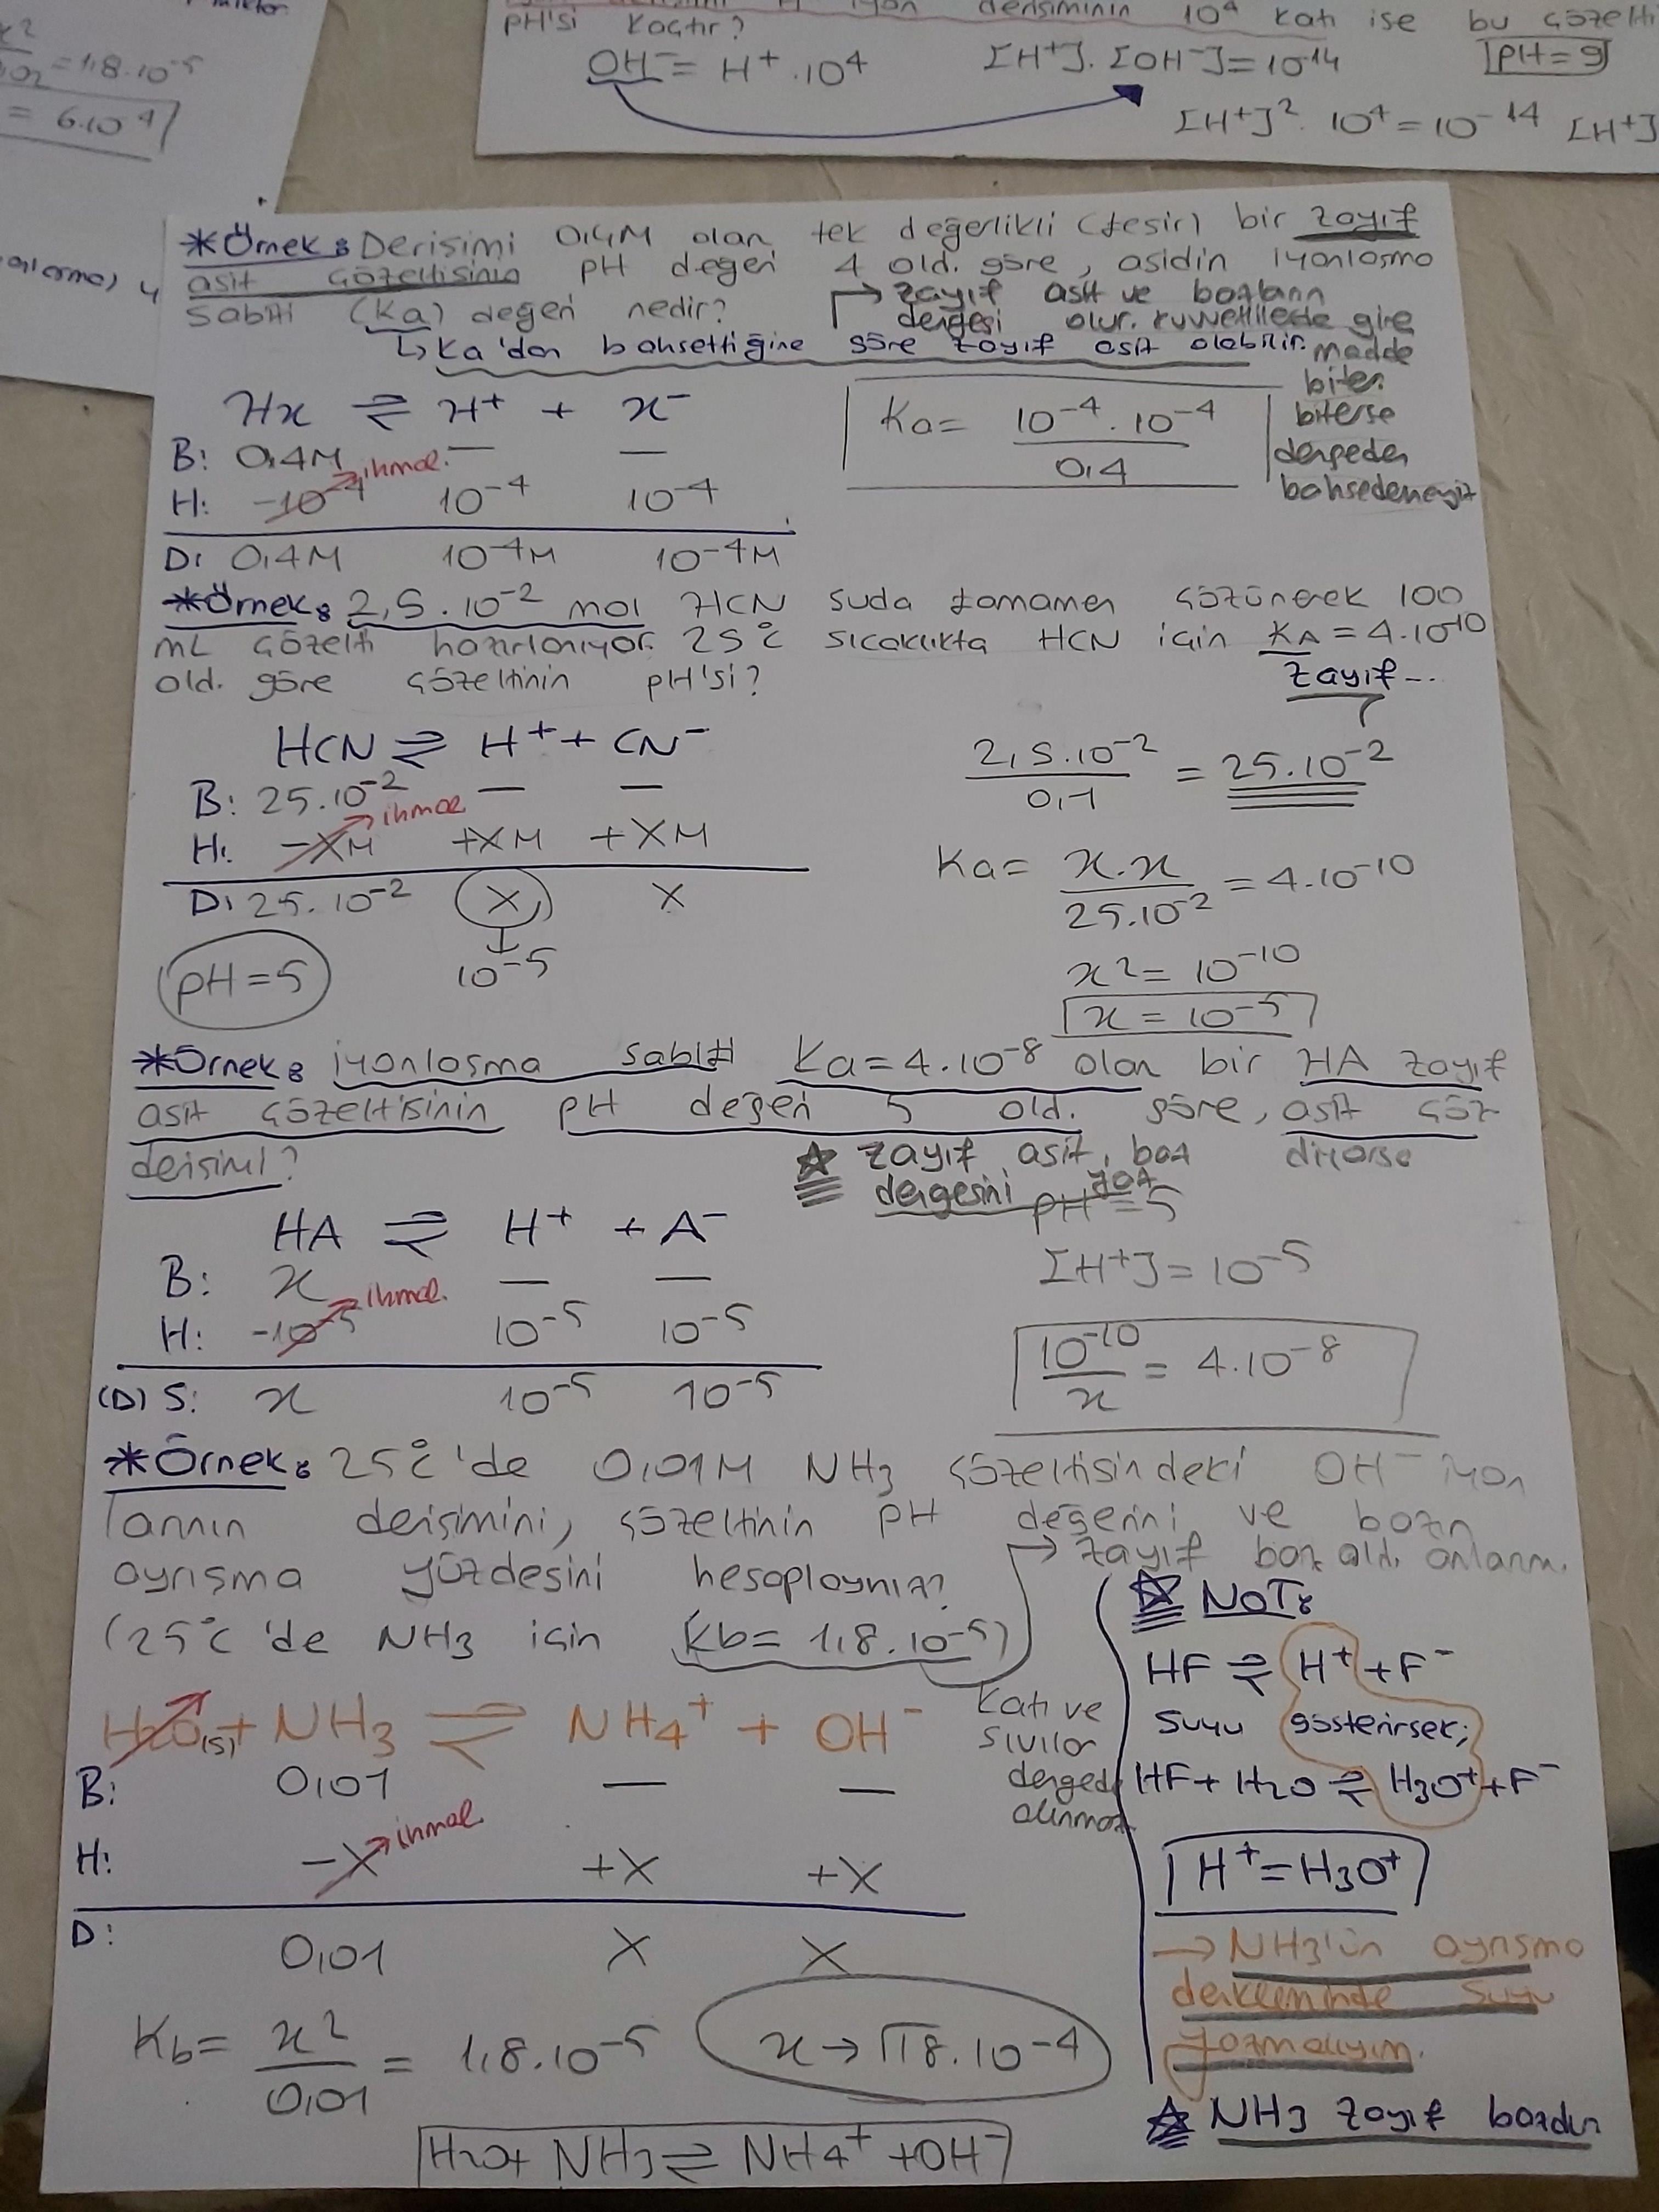 x²
= 1,8.10⁻⁵
= 6.10⁻⁴
iyon derişiminin 10⁴ katı ise bu çözelti
pH'si kaçtır?
OH⁻ = H⁺.10⁴
[H⁺].[OH⁻]=10⁻¹⁴
pH=9
[H⁺]². 10⁴=10⁻¹⁴ [H⁺]
*Örnek: Derişimi 0,4M olan tek değerlikli (tesir) bir zayıf
asit çözeltisinin pH değeri 4 old. göre, asidin iyonlaşma
sabiti (Ka) değeri nedir?
→ zayıf asit ve bazların
dengesi olur. kuvvetlilerde gire
madde
biter.
biterse
dengeden
bahsedemeyiz
↳ Ka'dan bahsettiğine göre zayıf asit olabilir.
Hx ⇌ H⁺ + x⁻
B: 0,4M — —
H: -10⁻⁴ ihmal. 10⁻⁴ 10⁻⁴
D: 0,4M 10⁻⁴M 10⁻⁴M
Ka= 10⁻⁴.10⁻⁴
0,4
*Örnek: 2,5.10⁻² mol HCN suda tamamen çözünerek 100
mL çözelti hazırlanıyor. 25°C sıcaklıkta HCN için KA=4.10⁻¹⁰
old. göre çözeltinin pH'si?
zayıf...
HCN ⇌ H⁺ + CN⁻
B: 25.10⁻² — —
H: -XM ihmal +XM +XM
D: 25.10⁻² X X
10⁻⁵
pH=5
2,5.10⁻²
0,1
= 25.10⁻²
Ka= x.x
25.10⁻²
= 4.10⁻¹⁰
x²= 10⁻¹⁰
x = 10⁻⁵
*Örnek: iyonlaşma sabiti Ka=4.10⁻⁸ olan bir HA zayıf
asit çözeltisinin pH değeri 5 old. göre, asit çöz
derişimi?
☆ zayıf asit, baz diyorsa
dengesini yaz
pH=5
HA ⇌ H⁺ + A⁻
B: x — —
H: -10⁻⁵ ihmal. 10⁻⁵ 10⁻⁵
(D) S: x 10⁻⁵ 10⁻⁵
[H⁺]=10⁻⁵
10⁻¹⁰
x
= 4.10⁻⁸
*Örnek: 25°C'de 0,01M NH₃ çözeltisindeki OH⁻ iyon
larının derişimini, çözeltinin pH değerini ve bazın
ayrışma yüzdesini hesaplayınız?
→ zayıf baz old. anlarım.
(25°C'de NH₃ için Kb= 1,8.10⁻⁵)
H₂O(s) + NH₃ ⇌ NH₄⁺ + OH⁻
B: 0,01 — —
H: -X ihmal +X +X
D: 0,01 X X
Katı ve
sıvılar
dengede
alınmaz
☆ NOT:
HF ⇌ H⁺ + F⁻
suyu gösterirsek;
HF + H₂O ⇌ H₃O⁺ + F⁻
H⁺ = H₃O⁺
→ NH₃'ün ayrışma
denkleminde suyu
yazmalıyım.
☆ NH₃ zayıf bazdır
Kb= x²
0,01
= 1,8.10⁻⁵
x→√18.10⁻⁴
H₂O + NH₃ ⇌ NH₄⁺ + OH⁻